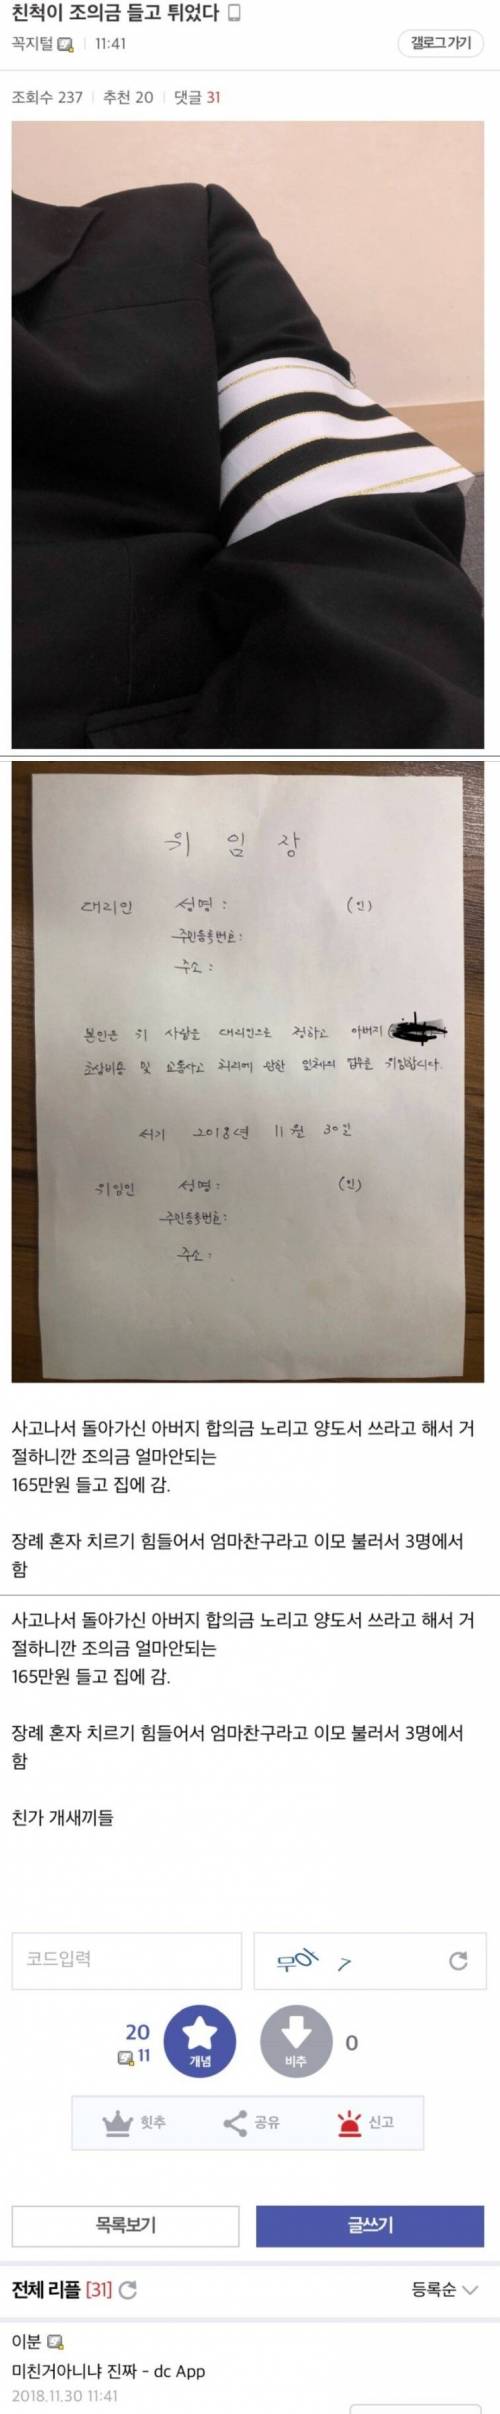 친척이 조의금 들고 튀었다
꼭지털
11:41
갤로그 가기
조회수 237
추천 20
댓글 31
위 임 장
대리인 성명 : (인)
주민등록번호 :
주소 :
본인은 위 사람을 대리인으로 정하고 아버지
초상비용 및 교통사고 처리에 관한 일체의 업무를 위임합니다.
서기 2018년 11월 30일
위임인 성명 : (인)
주민등록번호 :
주소 :
사고나서 돌아가신 아버지 합의금 노리고 양도서 쓰라고 해서 거
절하니깐 조의금 얼마안되는
165만원 들고 집에 감.
장례 혼자 치르기 힘들어서 엄마찬구라고 이모 불러서 3명에서
함
사고나서 돌아가신 아버지 합의금 노리고 양도서 쓰라고 해서 거
절하니깐 조의금 얼마안되는
165만원 들고 집에 감.
장례 혼자 치르기 힘들어서 엄마찬구라고 이모 불러서 3명에서
함
친가 개새끼들
코드입력
20
11
개념
비추
0
힛추
공유
신고
목록보기
글쓰기
전체 리플 [31]
등록순
이분
미친거아니냐 진짜 - dc App
2018.11.30 11:41